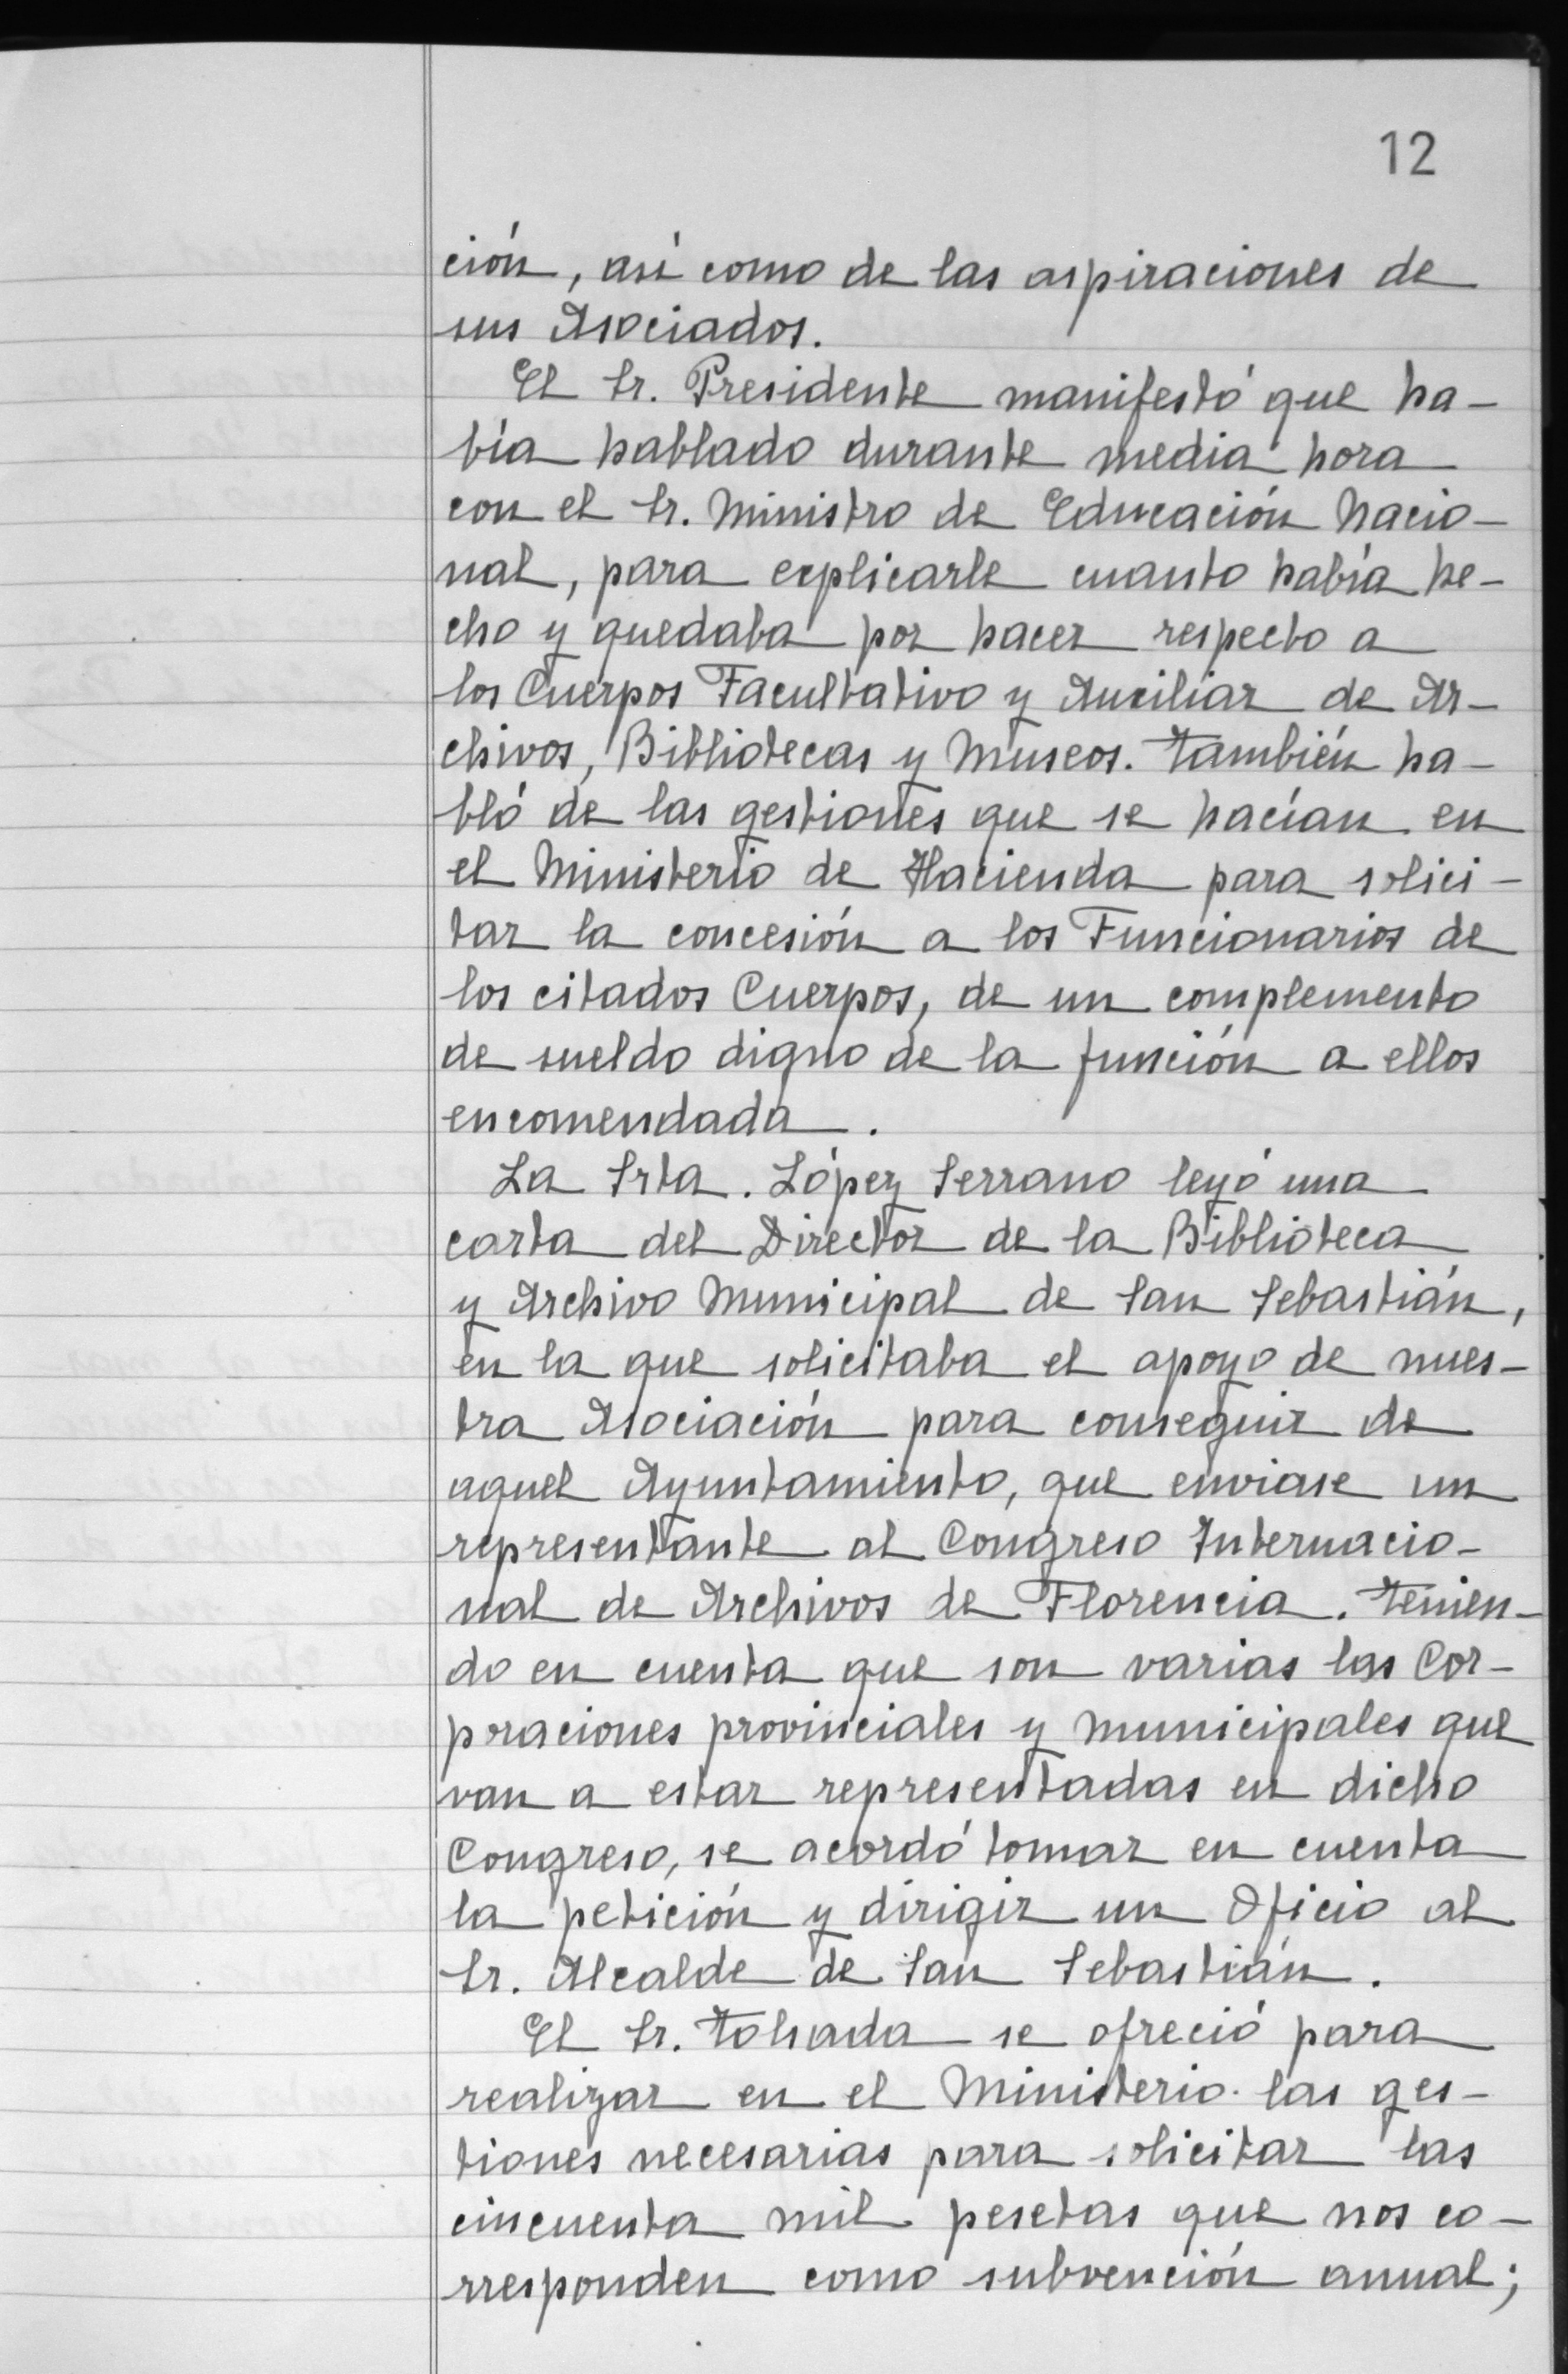 12
ción, así como de las aspiraciones de
sus Asociados.
El Sr. Presidente manifestó que ha-
bía hablado durante media hora
con el Sr. Ministro de Educación Nacio-
nal, para explicarle cuanto había he-
cho y quedaba por hacer respecto a
los Cuerpos Facultativo y Auxiliar de Ar-
chivos, Bibliotecas y Museos. También ha-
bló de las gestiones que se hacían en
el Ministerio de Hacienda para solici-
tar la concesión a los Funcionarios de
los citados Cuerpos, de un complemento
de sueldo digno de la función a ellos
encomendada.
La Srta. López Serrano leyó una
carta del Director de la Biblioteca
y Archivo Municipal de San Sebastián,
en la que solicitaba el apoyo de nues-
tra Asociación para conseguir de
aquel Ayuntamiento, que enviase un
representante al Congreso Internacio-
nal de Archivos de Florencia. Tenien-
do en cuenta que son varias las Cor-
poraciones provinciales y municipales que
van a estar representadas en dicho
Congreso, se acordó tomar en cuenta
la petición y dirigir un Oficio al
Sr. Alcalde de San Sebastián.
El Sr. Tolsada se ofreció para
realizar en el Ministerio las ges-
tiones necesarias para solicitar las
cincuenta mil pesetas que nos co-
rresponden como subvención anual;